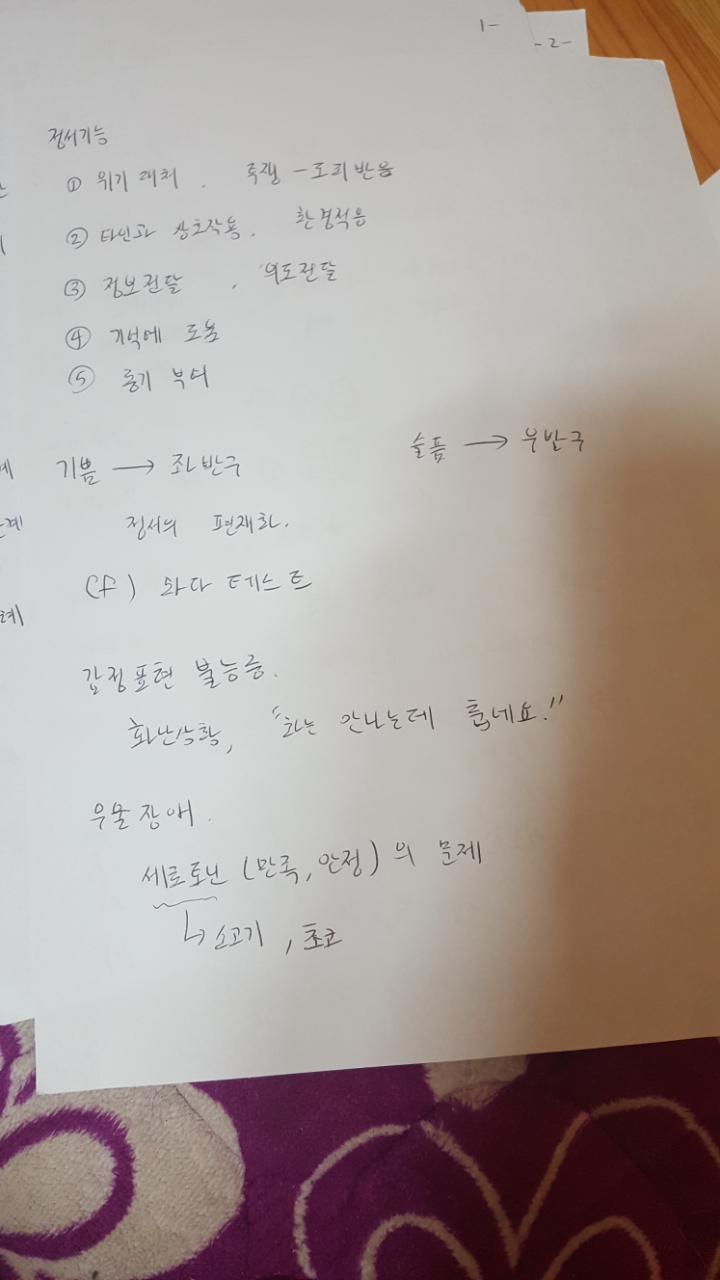 1-
-2-
정서기능
① 위기 대처 . 투쟁 - 도피반응
② 타인과 상호작용. 환경적응
③ 정보전달 , 의도전달
④ 기억에 도움
⑤ 동기 부여
기쁨 → 좌반구 슬픔 → 우반구
정서의 편재화.
(cf) 와다 테스트
감정표현 불능증.
화난상황, "화는 안나는데 춥네요."
우울장애.
세로토닌 (만족, 안정)의 문제
↳ 소고기, 초코